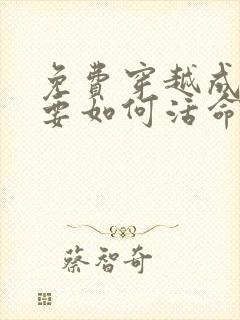 免費穿越成
要如何活命
蔡智奇